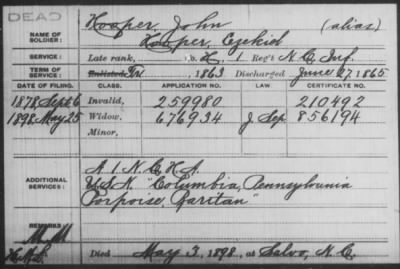 DEAD
NAME OF SOLDIER: Hooper, John (alias)
Hooper, Ezekiel
SERVICE: Late rank, Co. H, 1 Reg't N.C. Inf.
TERM OF SERVICE: Enlisted 1863 Discharged June 27, 1865
DATE OF FILING. CLASS. APPLICATION NO. LAW. CERTIFICATE NO.
1878 Sept 6 Invalid, 259980 210492
1898 May 25 Widow, 676934 J Sep 856194
Minor,
ADDITIONAL SERVICES: A 1 N.C. H.A.
U.S.N. "Columbia, Pennsylvania
Porpoise, Raritan"
REMARKS:
Died May 3, 1898, at Salvo, N.C.